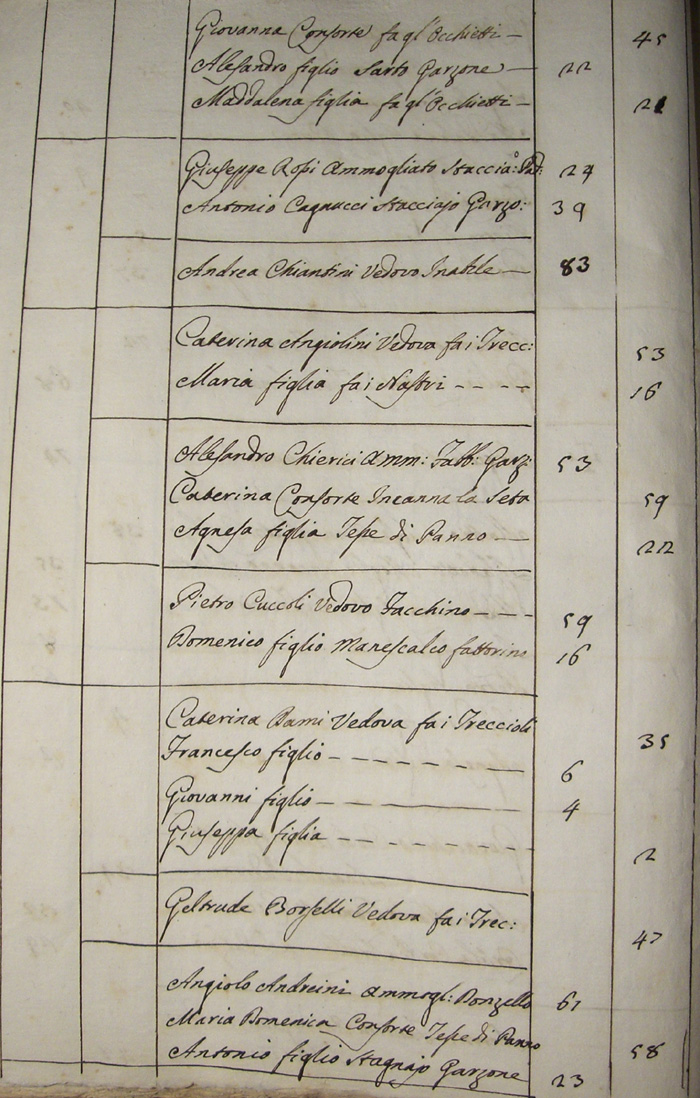 Giovanna Consorte fa gl'Occhietti — 45
Alesandro figlio Sarto Garzone — 22
Maddalena figlia fa gl'Occhietti — 21
Giuseppe Rossi Ammogliato Stacciaº: 24
Antonio Cagnucci Stacciajo Garzo: 39
Andrea Chiantini Vedovo Inabile — 83
Caterina Angiolini Vedova fa i Trecc: 53
Maria figlia fa i Nastri - - - - 16
Alesandro Chierici Amm: Fabb: Garz: 53
Caterina Consorte Incanna la Seta 59
Agnesa figlia Tesse di Panno — 22
Pietro Cuccoli Vedovo Facchino - - - 59
Domenico figlio Manescalco fattorino 16
Caterina Bami Vedova fa i Treccioli 35
Francesco figlio - - - - - - - 6
Giovanni figlio - - — - - 4
Giuseppa figlia - - - - - - - 2
Geltrude Borselli Vedova fa i Trec: 47
Angiolo Andreini Ammogl: Donzello 61
Maria Domenica Consorte Tesse di Panno 58
Antonio figlio Stagnajo Garzone 23